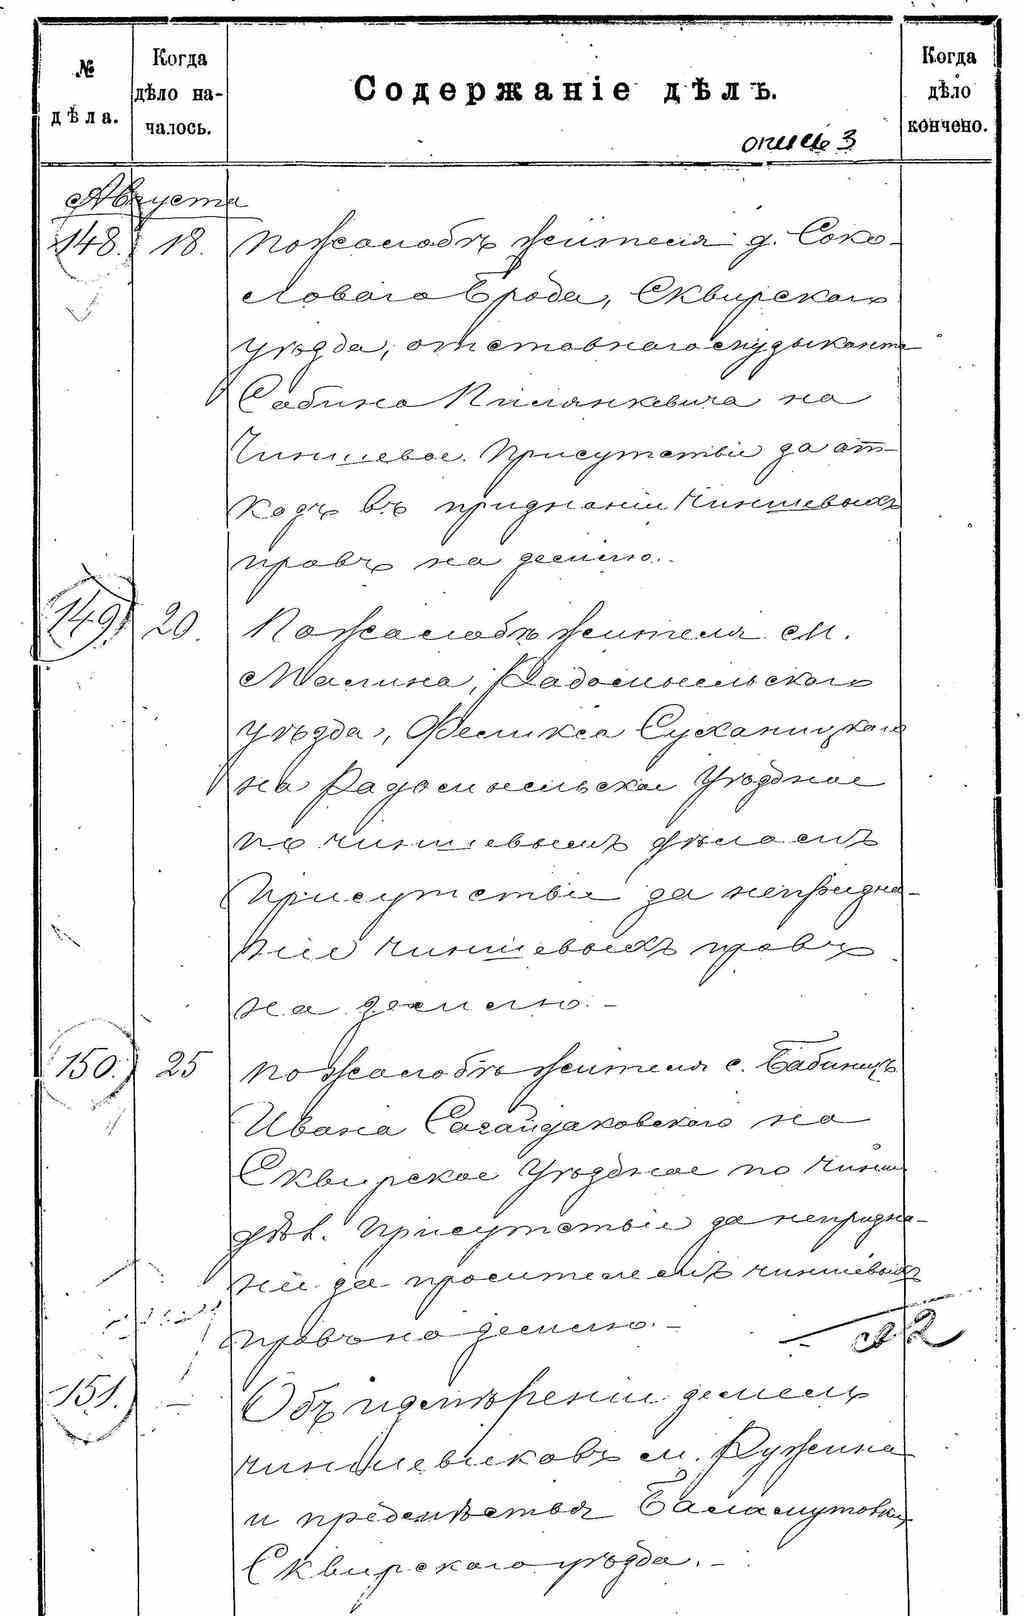 № дѣла.
Когда дѣло на-чалось.
Содержаніе дѣлъ.
Когда дѣло кончено.
опись 3
Августа
148. 18. По жалобѣ жителя д. Соко-
ловаго Брода, Сквирскаго
уѣзда, отставнаго музыканта
Сабина Пилянкевича на
Чиншевое Присутствіе за от-
казъ въ признаніи чиншевыхъ
правъ на землю.
149. 20. По жалобѣ жителя м.
Малина, Радомысльскаго
уѣзда, Феликса Суханицкаго
на Радомысльское Уѣздное
по чиншевымъ дѣламъ
Присутствіе за непризна-
ніе чиншевыхъ правъ
на землю. –
150. 25 По жалобѣ жителя с. Бабинецъ
Ивана Сагайдаковскаго на
Сквирское Уѣздное по чинш.
дѣл. Присутствіе за непризна-
ніе за просителемъ чиншевыхъ
правъ на землю. –
151. – Объ измѣреніи земель
чиншевиковъ м. Ружина
и предмѣстья Баламутовки
Сквирскаго уѣзда. –